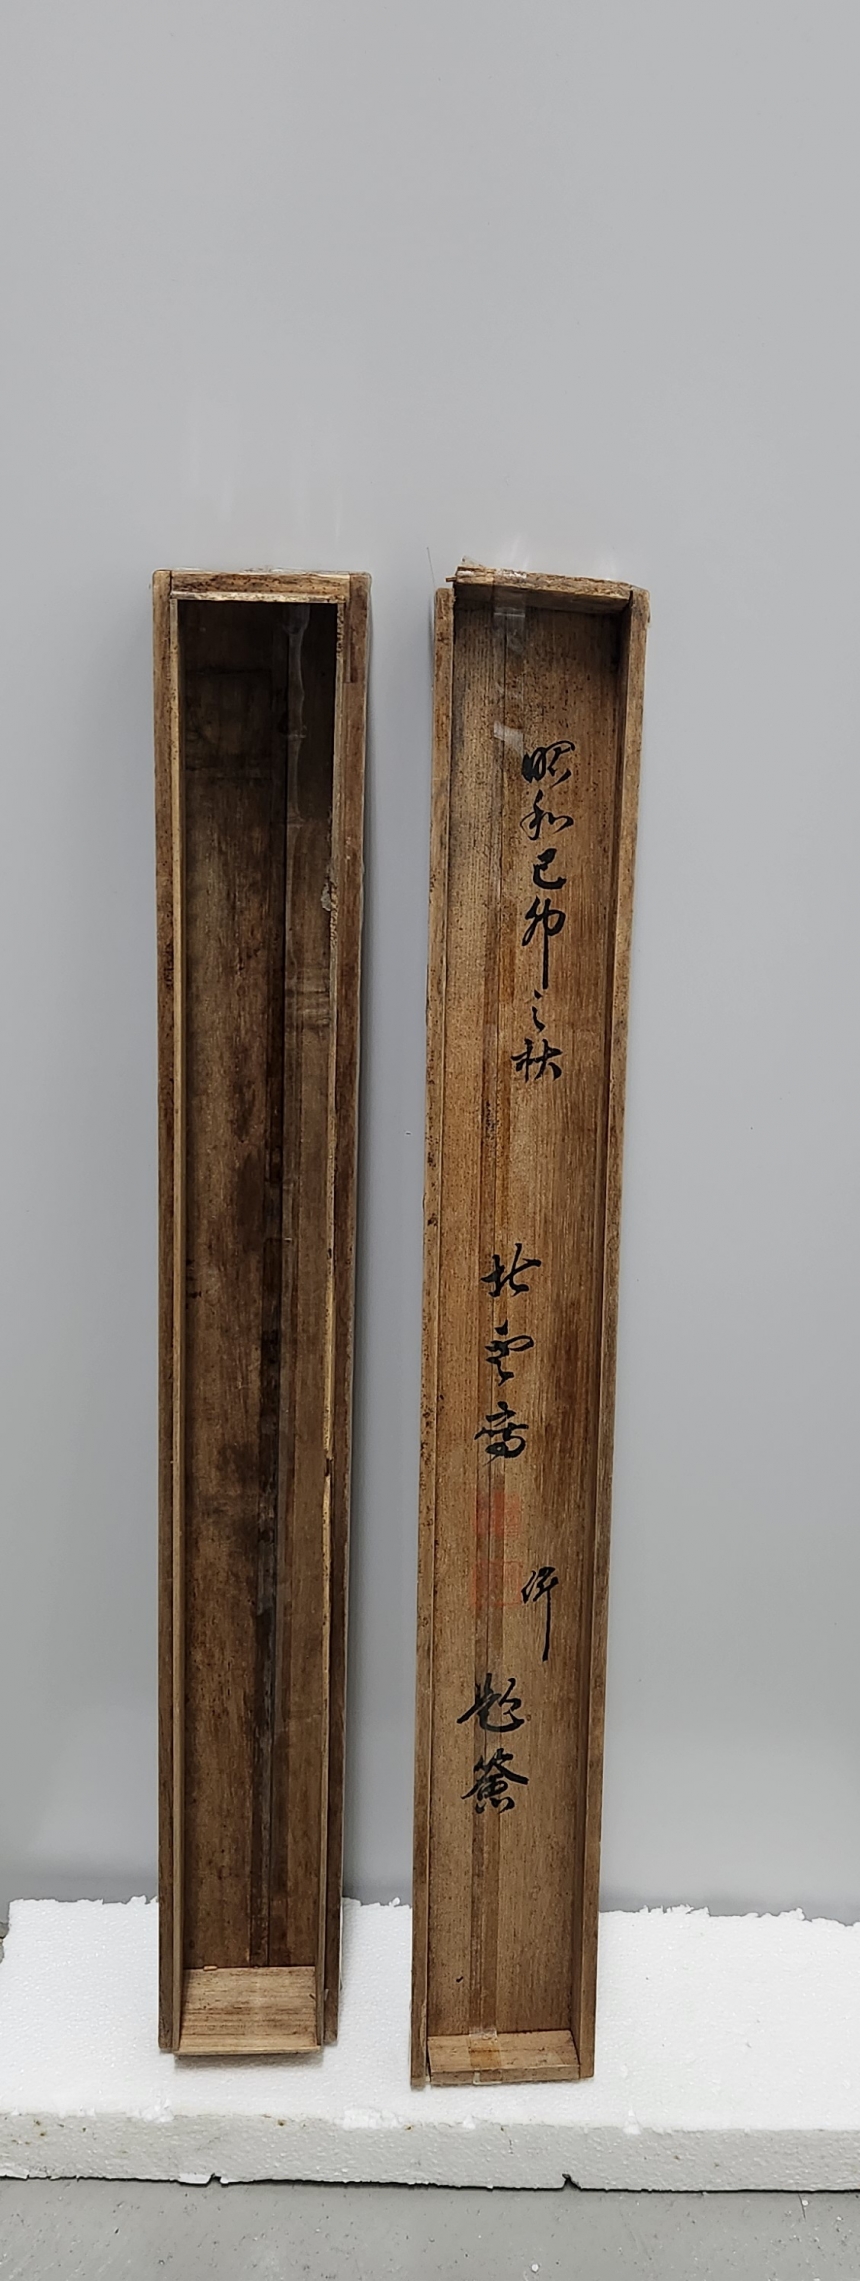 昭和己卯之秋
北雲齋
併題簽